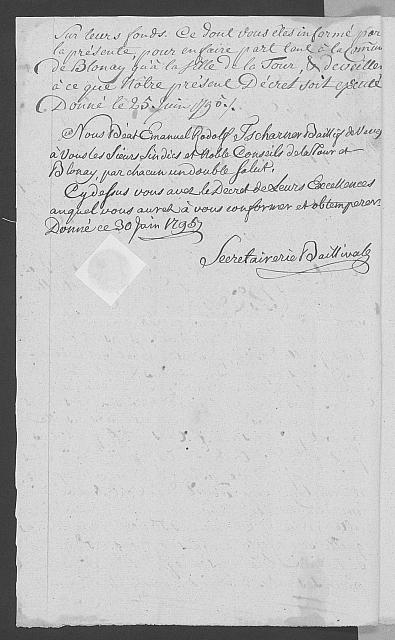 Sur leurs fonds. Ce dont vous êtes informé par
la présente, pour en faire part tant à la Comun
de Blonay qu'à la ville de la Tour, & de veiller
à ce que Nôtre présent Décret soit exécuté
Donné le 25. Juin 1795.
Nous Béat Emanuel Rodolf Tscharner Baillif de Vevey
à Vous les Sieurs Sindics et Noble Conseils de la Tour et
Blonay, par chacun un double Salut.
Cy dessus vous avez le Décret de Leurs Excellences
auquel vous aurez à vous conformer et obtemperer
Donné ce 30 Juin 1795
Secretairerie Baillivale